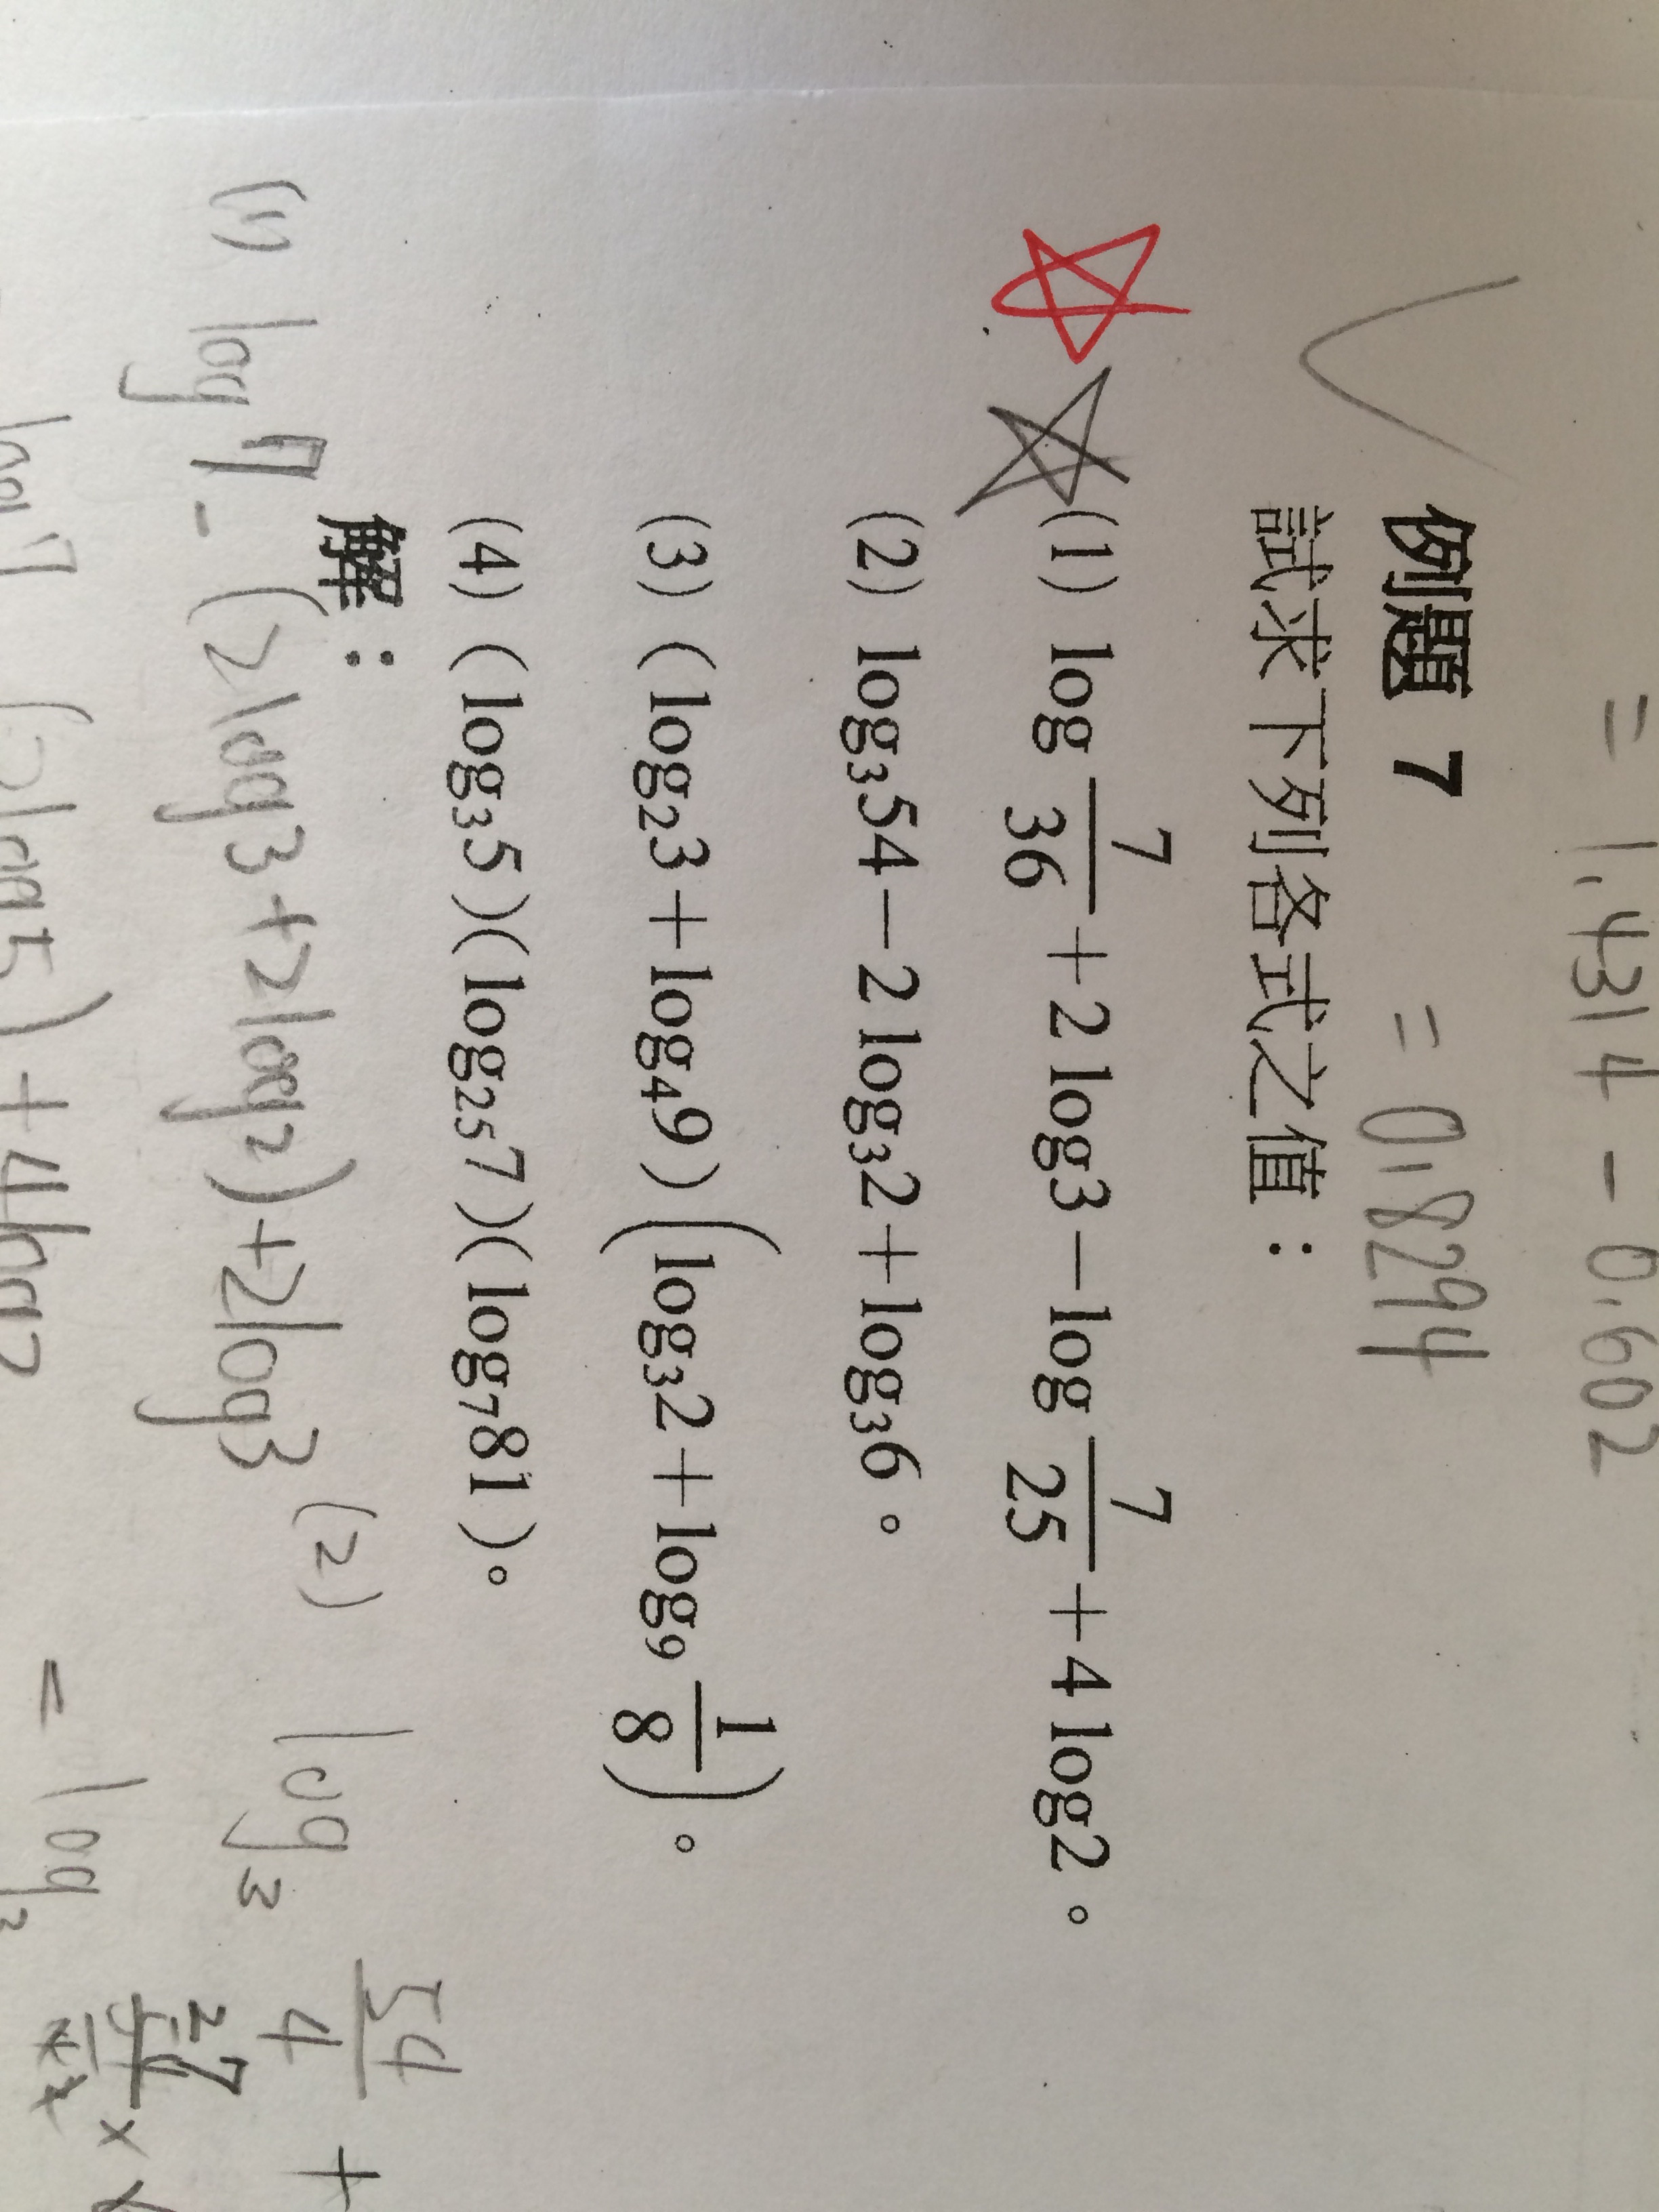 = 1.4314 - 0.602
= 0.8294
例題 7
試求下列各式之值：
(1) log 7/36 + 2 log3 － log 7/25 + 4 log2。
(2) log₃54 － 2 log₃2 + log₃6。
(3) (log₂3 + log₄9)(log₃2 + log₉ 1/8)。
(4) (log₃5)(log₂₅7)(log₇81)。
解：
(1) log7 - (2log3+2log2)+2log3
(2) log₃ 54/4 +
log7 (2log5) + 4log2
= log₃